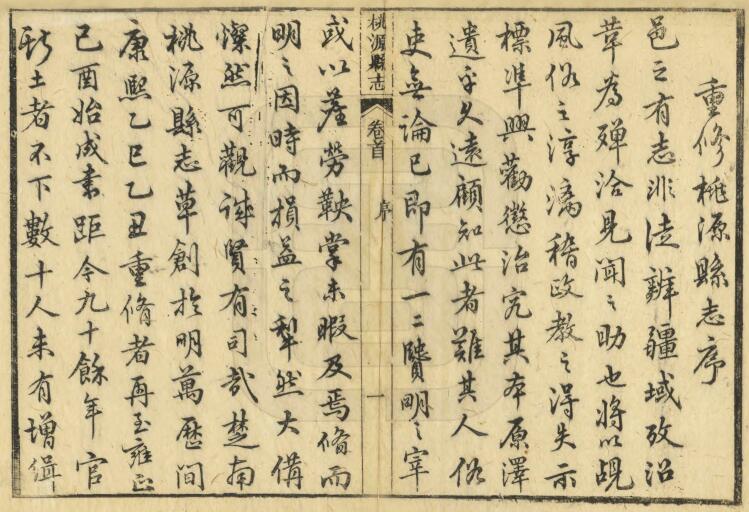 重修桃源縣志序
邑之有志非徒辨疆域攷沿
革為殫洽見聞之助也將以覘
風俗之淳漓稽政教之得失示
標準興勸懲治究其本原澤
遺乎久遠顧知此者難其人俗
吏無論已即有一二賢明之宰
桃源縣志
卷首
序
一
或以差勞鞅掌未暇及焉脩而
明之因時而損益之犁然大備
燦然可觀誠賢有司哉楚南
桃源縣志草創於明萬歷間
康熙乙巳乙丑重脩者再至雍正
己酉始成書距今九十餘年官
斯土者不下數十人未有增緝